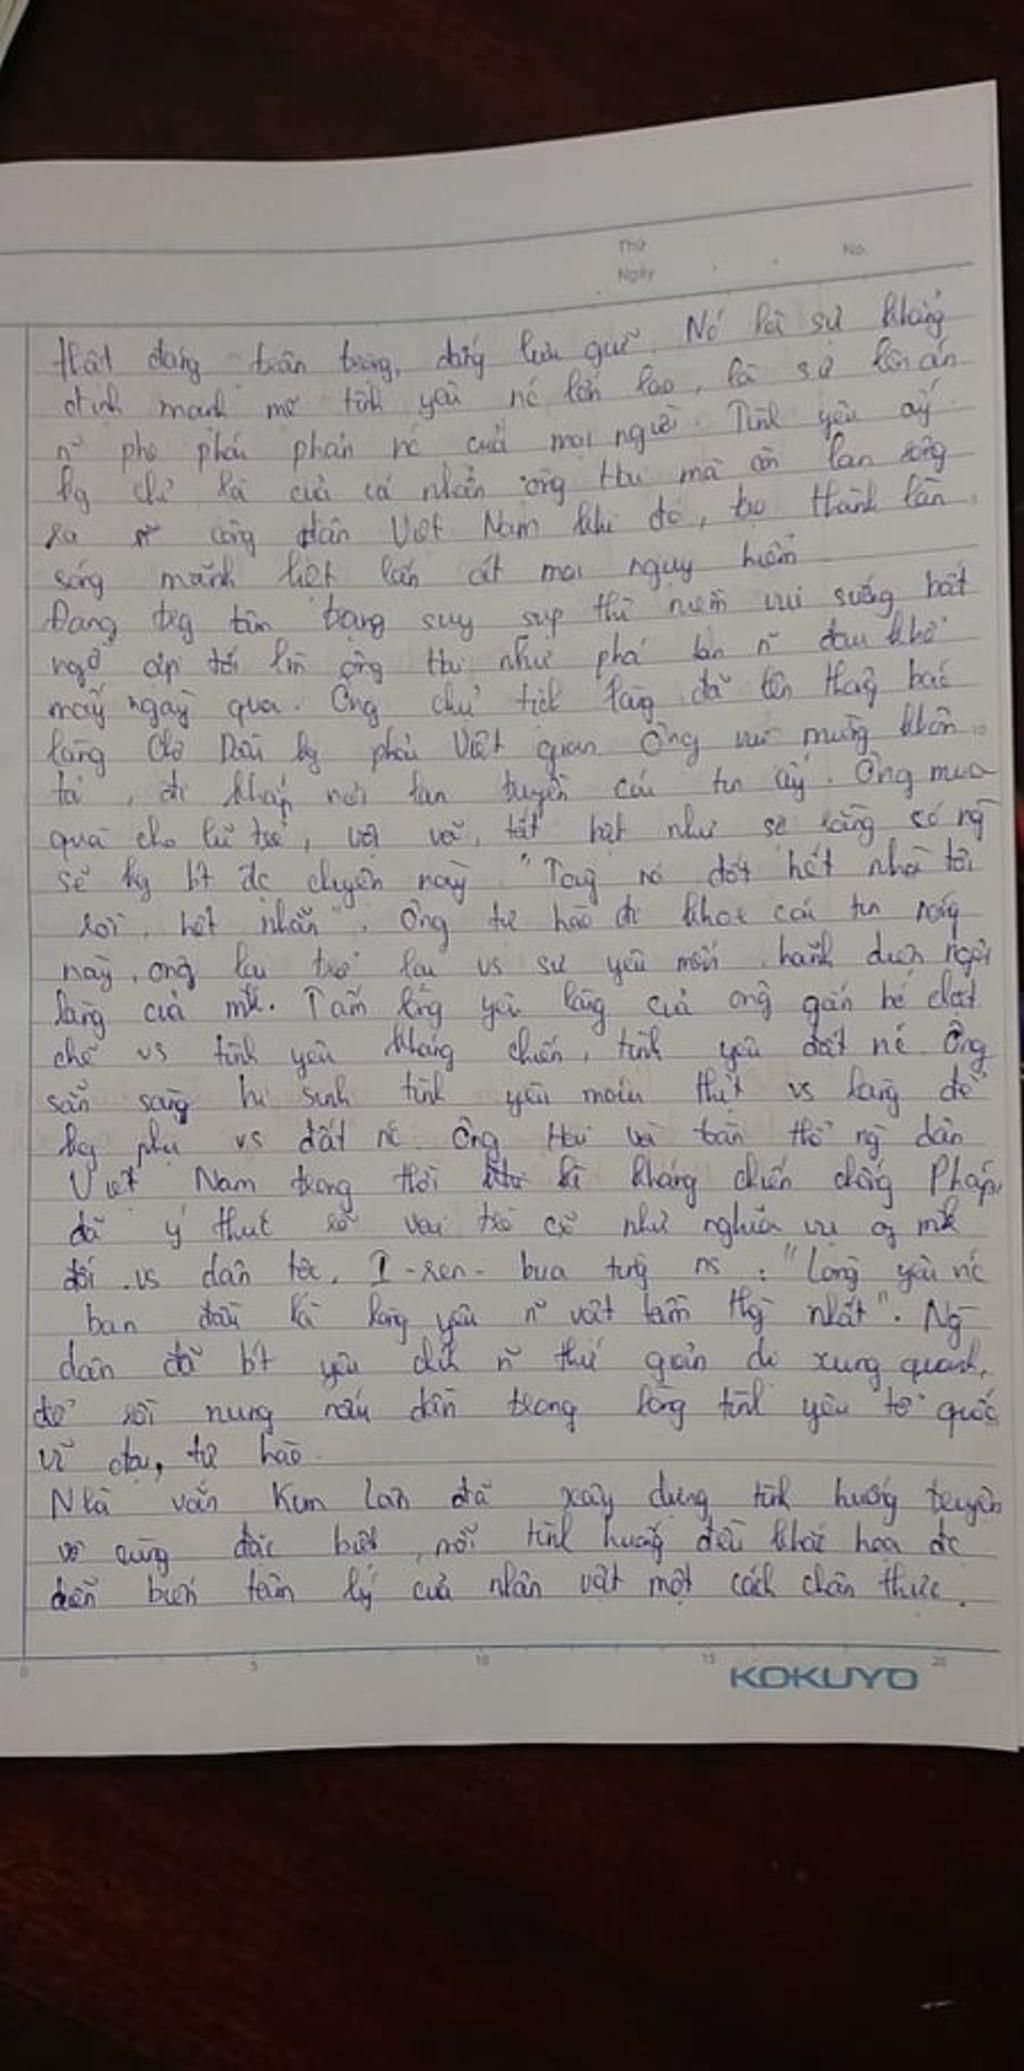 Thứ
No.
Ngày
thật đáng trân trọng, đáng lưu giữ. Nó là sự khẳng
định mạnh mẽ tình yêu nc lớn lao, là sự lên án
n~ phe phái phản nc của mọi người. Tình yêu ấy
kg chỉ là của cá nhân ông Hai mà còn lan rộng
ra công dân Việt Nam khi đó, tạo thành làn
sóng mãnh liệt lấn át mọi nguy hiểm
Đang trg tâm trạng suy sụp thì niềm vui sướng bất
ngờ ập tới ông Hai như phá tan n~ đau khổ
mấy ngày qua. Ông chủ tịch làng đã lên bác
làng Chợ Dầu kg phải Việt gian. Ông vui mừng khôn
tả, đi khắp nơi lan truyền cái tin ấy. Ông mua
quà cho lũ trẻ, vội vã, tất bật như sợ rằng có ng
sẽ kg bt đc chuyện này "Tây nó đốt hết nhà tôi
rồi, hết nhẵn". Ông tự hào đi khoe cái tin này, ông lại trở lại vs sự yêu mến, hãnh diện ngôi
làng của mk. Tấm lòng yêu làng của ông gắn bó chặt
chẽ vs tình yêu kháng chiến, tình yêu đất nc. Ông
sẵn sàng hi sinh tình yêu máu thịt vs làng để
kg phụ vs đất nc. Ông Hai và toàn thể ng dân
Việt Nam trong thời kì kháng chiến chống Pháp
đã ý thức rõ vai trò cũ như nghĩa vụ of mk
đối vs dân tộc. I-ren-bua từng ns: "Lòng yêu nc
ban đầu là lòng yêu n~ vật tầm thg nhất". Ng
dân đã bt yêu n~ thứ giản dị xung quanh,
để rồi nung nấu dần trong lòng tình yêu tổ quốc
vĩ đại, tự hào.
Nhà văn Kim Lân đã xây dựng tình huống truyện
vô cùng đặc biệt, mỗi tình huống đều khắc họa đc
diễn biến tâm lý của nhân vật một cách chân thực.
0 5 10 15 20
KOKUYO